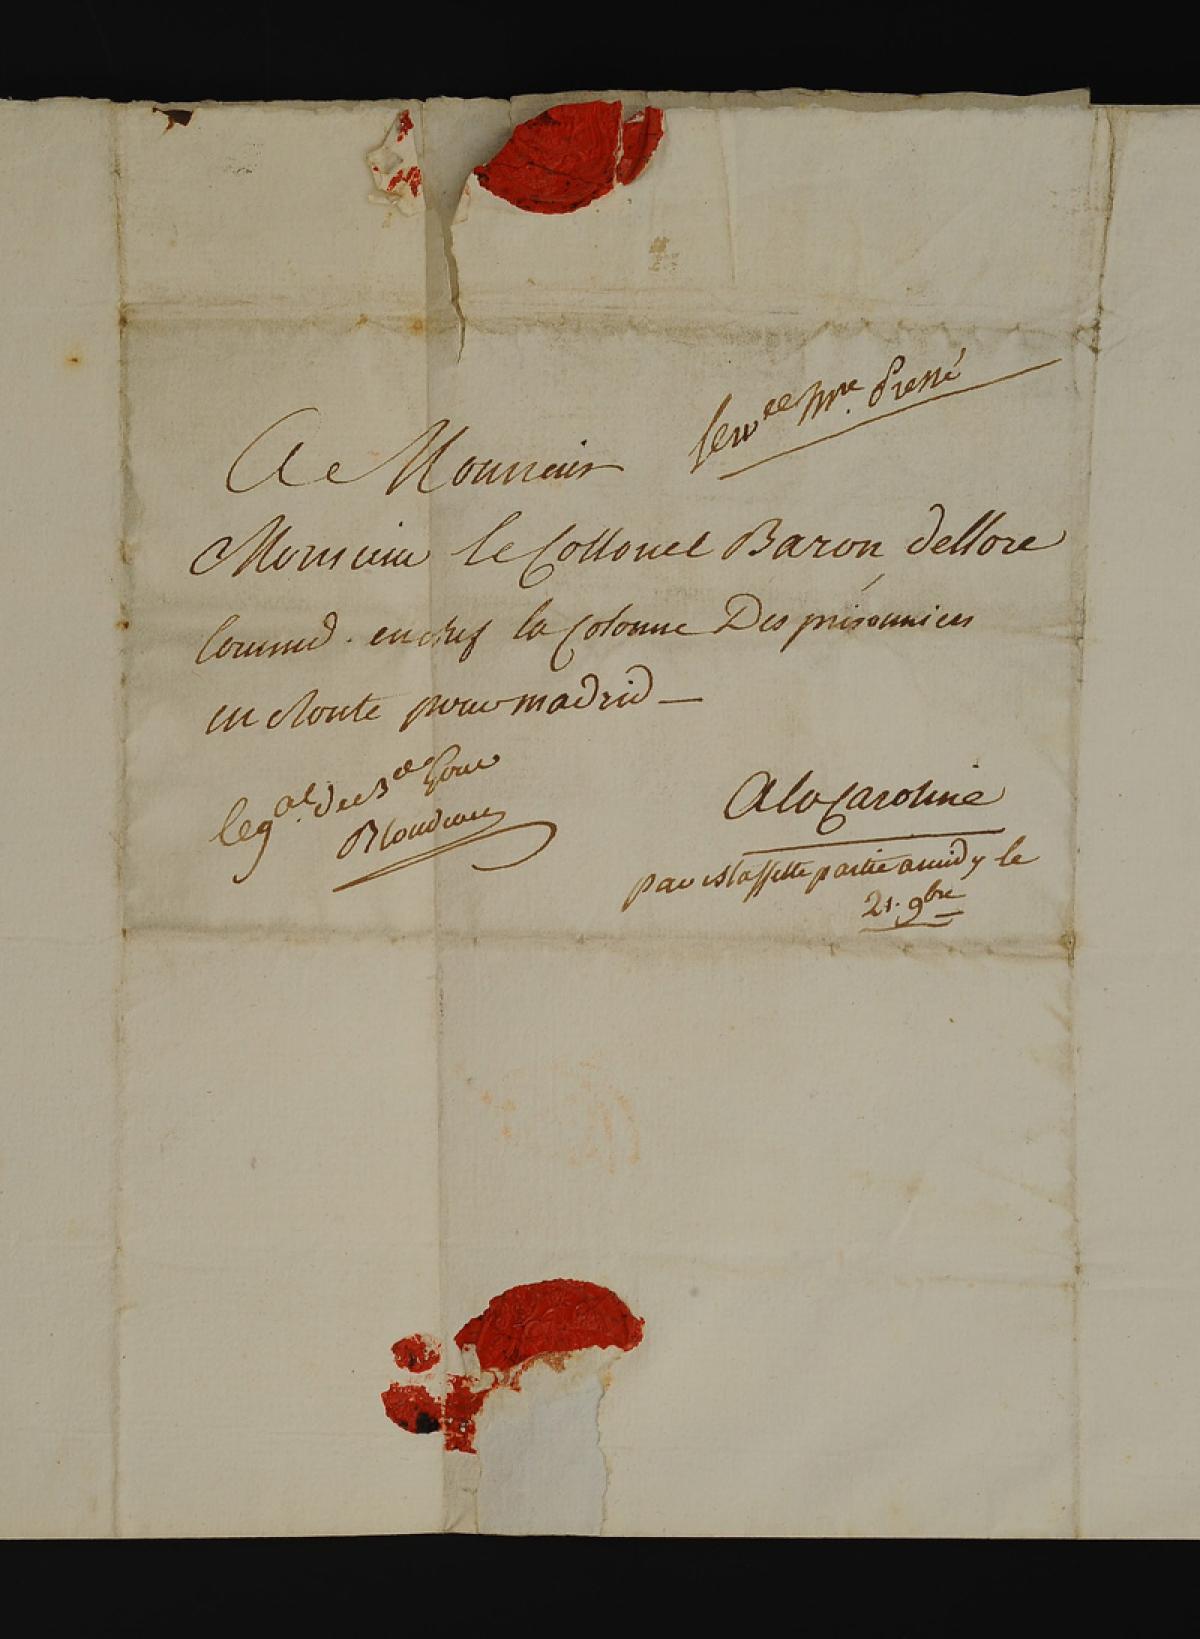 serv.ce M.re Pressé
A Monsieur
Monsieur le Collonel Baron dellore
Command. en chef la Colonne Des prisonniers
en Route pour madrid —
le g.al de
Blondeau
A la Caroline
par estaffette partie a midy le
21. 9bre